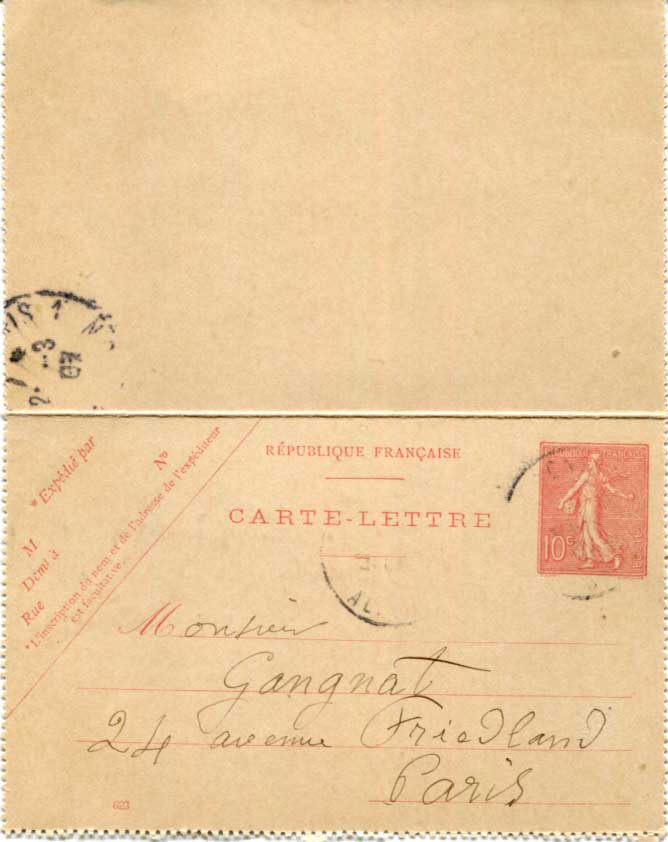 -3
07
* Expédié par
M
Dem^t à
Rue
N°
*L'inscription du nom et de l'adresse de l'expéditeur
est facultative.
RÉPUBLIQUE FRANÇAISE
CARTE-LETTRE
RÉPUBLIQUE FRANÇAISE
10c
Monsieur
Gangnat
24 avenue Friedland
Paris
623